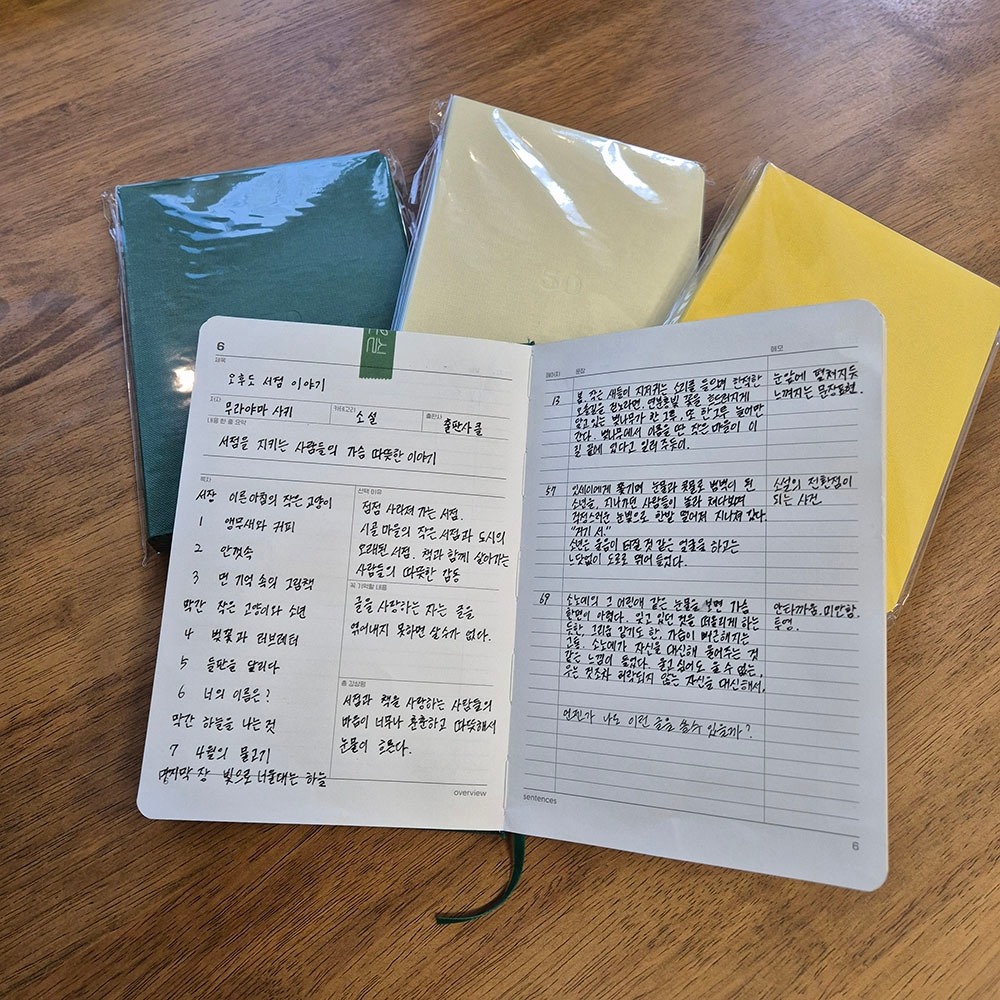 50
6
제목
오후도 서점 이야기
저자
무라야마 사키
카테고리
소설
출판사
출판사 클
내용 한 줄 요약
서점을 지키는 사람들의 가슴 따뜻한 이야기
목차
서장 이른 아침의 작은 고양이
1 앵무새와 커피
2 안껏속
3 먼 기억 속의 그림책
막간 작은 고양이와 소년
4 벚꽃과 러브레터
5 들판을 달리다
6 너의 이름은?
막간 하늘을 나는 것
7 4월의 물고기
마지막 장 빛으로 너울대는 하늘
선택 이유
점점 사라져 가는 서점.
시골 마을의 작은 서점과 도시의
오래된 서점. 책과 함께 살아가는
사람들의 따뜻한 감동
꼭 기억할 내용
글을 사랑하는 자는 글을
엮어내지 못하면 살수가 없다.
총 감상평
서점과 책을 사랑하는 사람들의
마음이 너무나 훈훈하고 따뜻해서
눈물이 흐른다.
overview
페이지
문장
메모
13
봄. 작은 새들이 지저귀는 소리를 들으며 한적한
오솔길을 걷노라면, 연분홍빛 꽃을 흐드러지게
안고 있는 벚나무가 한 그루, 또 한 그루 늘어만
간다. 벚나무에서 이름을 딴 작은 마을이 이
길 끝에 있다고 일러 주듯이.
눈앞에 펼쳐지듯
느껴지는 문장표현.
57
잇세이에게 쫓기며 눈물과 콧물로 범벅이 된
소년을, 지나가던 사람들이 놀라 쳐다보며
걱정스러운 눈빛으로 한발 떨어져 지나쳐 갔다.
"거기 서."
소년은 울음이 터질 것 같은 얼굴을 하고는
느닷없이 도로로 뛰어 들었다.
소설의 전환점이
되는 사건.
69
소노에의 그 어린애 같은 눈물을 보면 가슴
한편이 아렸다. 잊고 있던 것을 떠올리게 하는
듯한, 그리운 같기도 한, 가슴이 뻐근해지는
고통. 소노에가 자신을 대신해 울어주는 것
같은 느낌이 들었다. 울고 싶어도 울 수 없는,
우는 것조차 허락되지 않는 자신을 대신해서.
안타까움. 미안함.
투영.
언젠가 나도 이런 글을 쓸수 있을까?
sentences
6